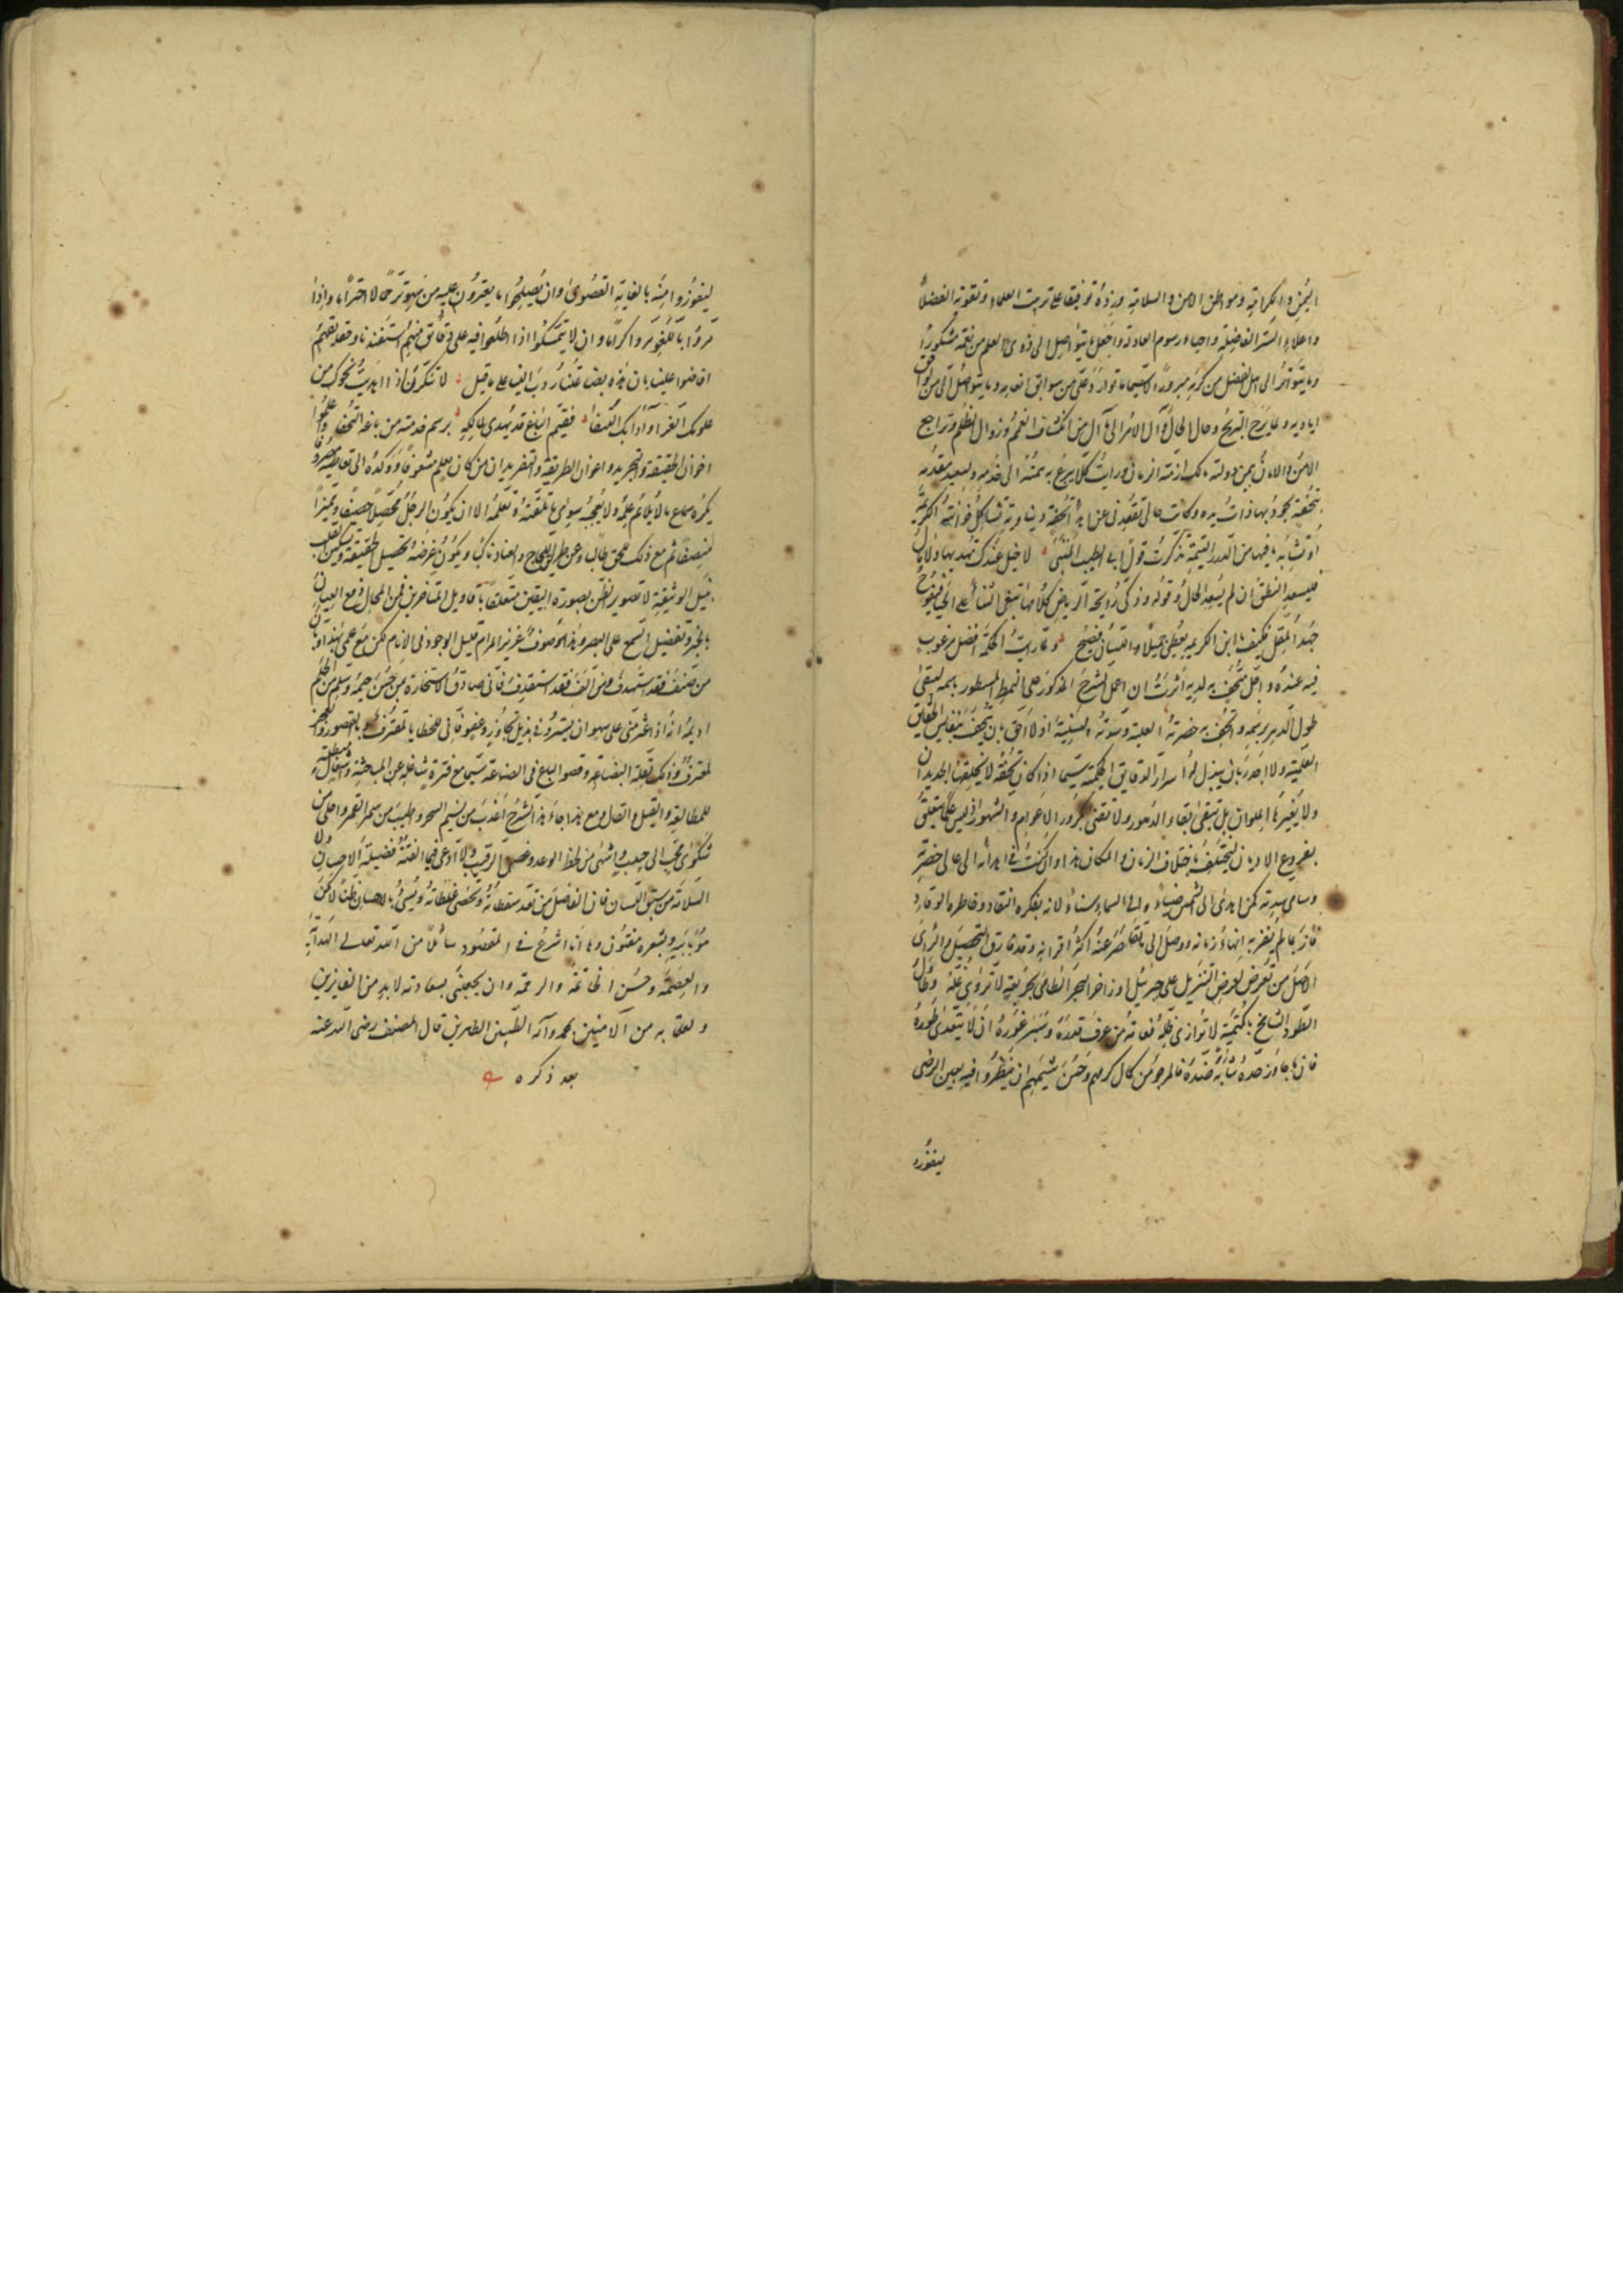 اليمن والكرامة ومواطن الامن والسلامة وزده توفيقا على تربيت العلماء وتقوية الفضلاء
واعلاء السنن الفاضلة واحياء رسوم العادلة واجعل ما يتواصل الى ذوى العلم من نعمه مشكورا
وما يتواتر الى اهل الفضل من كرمه مبرورا لا سيما ما توارد على من سوابق انعامه وما يتواصل الى من لواحق
اياديه ولما برح البرح وحال الحال وآل الامر الى ما آل من انكشاف الغمم وزوال الظلم وتراجع
الامن والامان بيمن دولته ملك ازمة الزمان ورايت كلا يرغ به همته الى خدمه وليسعد بمقدمه
بتحفة تجود بها ذات يده وكانت حالى تقعد نى عن اهداء تحفة دنياوية تشاكل خزانته الكريمة
او تشابه ما فيها من الدرر اليتيمة تذكرت قول ابى الطيب المتنبى لا خيل عندك تهديها ولا مال
فليسعد النطق ان لم يسعد الحال وقوله وذكى رائحة الرياض كلامها تبغى الثناء على الحيا فيفوح
جهد المقل فكيف بابن الكريمة يعطى جميلا واللسان فصيح ولما رايت الحكمة افضل مرغوب
فيه عنده واجل متحف به لديه اثرت ان اعمل الشرح المذكور على النمط المسطور باسمه ليبقى
طول الدهر برسمه واتحف به حضرته العلية وسدته السنية اذ لا احق بان يتحف بنفايس الحقايق
العلمية ولا اجدر بان يبذل له اسرار الدقايق الحكمية سيما اذا كان تحفة لا يخلقها الجديدان
ولا يغيرها الملوان بل تبقى بقاء الدهور ولا تفنى بكرور الاعوام والشهور اذ ليس علما يتعلق
بفروع الاديان ليختلف باختلاف الزمان والمكان هذا وان كنت فى اهدائه الى عالى حضرته
وسامى سدته كمن اهدى الى الشمس ضياء والى السماء سناء لانه بفكره النقاد وخاطره الوقاد
فاز بما لم يفز به ابناء زمانه ووصل الى ما تقاصر عنه اكثر اقرانه وقد فارق التحصيل والروى
الاصل من تعرض لعرض التنزيل على جبرئيل او زاخر البحر الطامى بجرعة لا تروى غلة وطال
الطود الشامخ باكتمة لا توازى قلة فغاية من عرف قدره وسبر غوره ان لا يتعدى طوره
فان ما جاوز حده شابه ضده فالمرجو من كمال كرمهم وحسن شيمهم ان ينظروا فيه بعين الرضى
ليفوزوا
ليفوزوا منه بالغاية القصوى وان يصلحوا ما يعثرون عليه من سهو ترحما لا اجتراما واذا
مروا باللغو مروا كراما وان لا يتمسكوا اذا اطلعوا فيه على دقائق منهم استفدناها وقد نقلهم
افاضوا علينا بان هذه بضاعتنا ردت الينا على ما قيل لا تنكرن اذا اهديت نحوك من
علومك الغر او آدابك النتفا فقيم الباغ قد يهدى لمالكه برسم خدمته من باغه التحفا واعلموا
اخوان الحقيقة والتجريد واعوان الطريقة والتفريد ان من كان بعلم مشغوفا ووكده الى تعاطيه مصروفا
يكره سماع ما لا يلائم علمه ولا يعجبه سوى ما تلقنه وتعلمه الا ان يكون الرجل محصلا حصيفا ومميزا
منصفا ثم مع ذلك للحق طالبا وعن طريق اللجاج والعناد ناكبا ويكون غرضه تحصيل الحقيقة وتسكين القلب
بنيل الوثيقة لا تصوير الظن بصورة اليقين متعلقا باقاويل المتأخرين فمن المحال دفع العيان
بالخبر وتفضيل السمع على البصر وهذا الموصوف عزيز المرام قليل الوجود فى الانام لكن مع علمى بهذا وبان
من صنف فقد استهدف ومن الف فقد استقذف فانى صادق الاستخارة ممن حسن خيمه وسلم من الحلم
اديمه انه اذا عثر منى على سهو ان يستره فى بذيل تجاوزه وعفوه فانى للخطايا لمقترف وبالقصور والعجز
لمعترف وذلك لقلة البضاعة وقصور الباع فى الصناعة سيما مع فترة شاغلة عن المباحثة واشغال مبطلة
للمطالعة والقيل والقال ومع هذا جاء هذا الشرح اعذب من نسيم السحر واطيب من سمر القمر واحلى من
شكوى محب الى حبيب واشهى من لحظ الوعد وغض الرقيب ولا ادعى فيما الفته فضيلة الاحسان ولا
السلامة من سبق اللسان فان الفاضل من تعد سقطاته وتحصى غلطاته ويسىء بالاحسان ظنا لا كمن
هو بابنه وبشعره مفتون وها انا اشرع فى المقصود سائلا من الله تعالى الهداية
والعصمة وحسن الخاتمة والرحمة وان يجعلنى بسعادته لابد من الفايزين
ولعقابه من الآمنين بمحمد وآله الطيبين الطاهرين قال المصنف رضى الله عنه
بعد ذكره